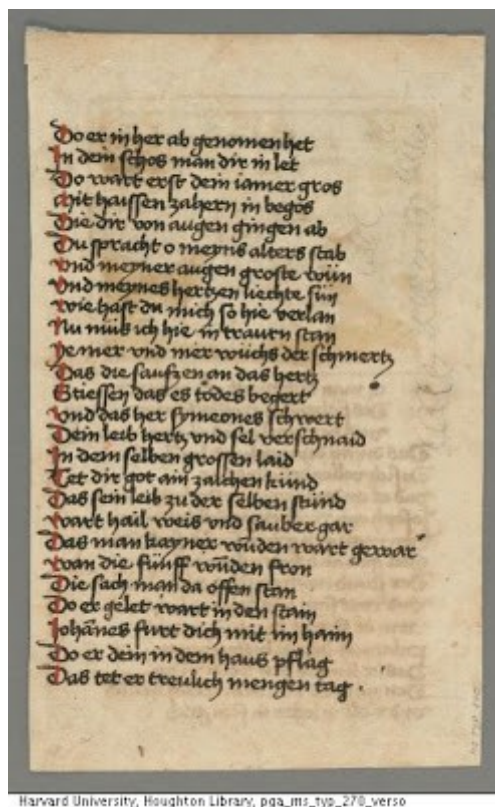 Do er in her ab genomen het
In dein schos man dir in let
Do wart erst dein iamer gros
Mit haissen zahern in begos
Die dir von augen gingen ab
Du spracht o meyns alters stab
Vnd meyner augen groste wün
Vnd meynes hertzen liechte sün
Wie hast du mich so hie verlan
Nu müs ich hie in traurn stan
Je mer vnd mer wüchs der schmertz
Das die saufzen an das hertz
Stiessen das es todes begert
Vnd das her Symeones schwert
Dein leib hertz vnd sel verschnaid
In dem selben grossen laid
Tet dir got ain zaichen kund
Das sein leib zu der selben stund
Wart hail weis vnd sauber gar
Das man kayner wūden wart gewar
Wan die fünff wūden fron
Die sach man da offen stan
Do er gelet wart in den stain
Johānes furt dich mit im haim
Do er dein in dem haus pflag
Das tet er treulich mengen tag .
Harvard University, Houghton Library, pga_ms_typ_270_verso